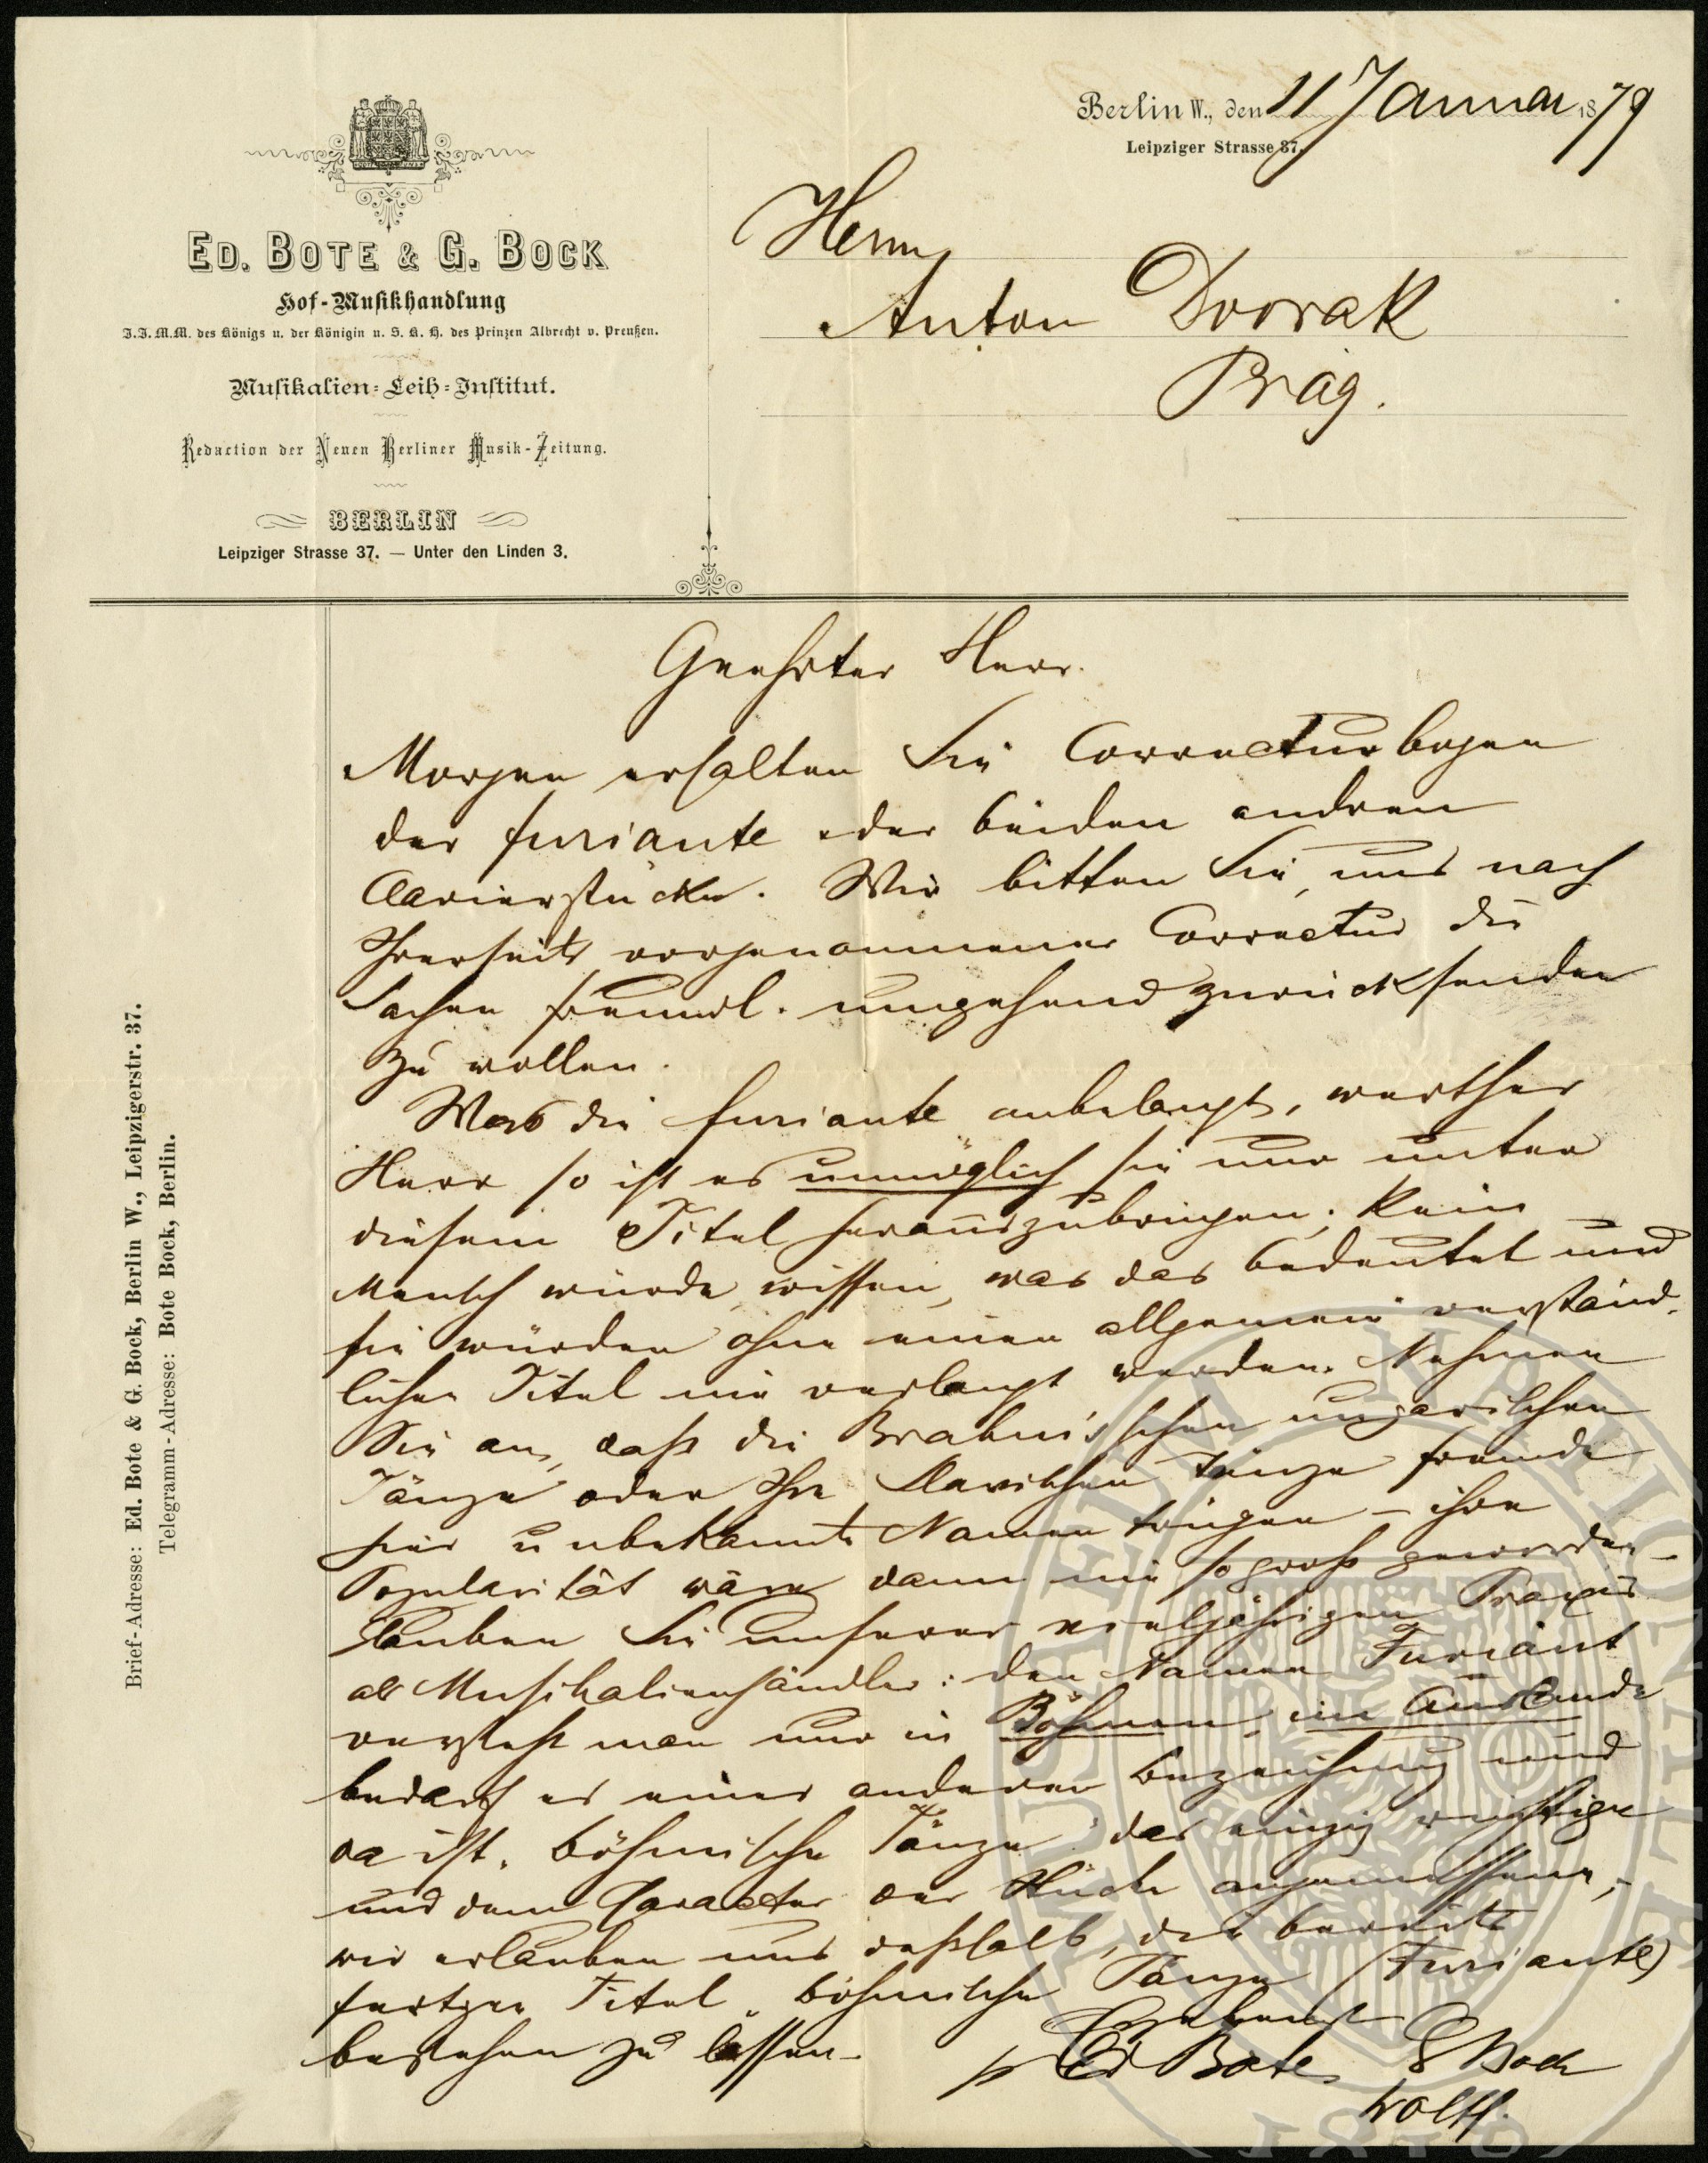 Berlin W., den 11 Januar 1879
Leipziger Strasse 37.
ED. BOTE & G. BOCK
Hof-Musikhandlung
I.I.M.M. des Königs u. der Königin u. S. K. H. des Prinzen Albrecht v. Preußen.
Musikalien-Leih-Institut.
Redaction der Neuen Berliner Musik-Zeitung.
BERLIN
Leipziger Strasse 37. — Unter den Linden 3.
Herrn
Anton Dvorak
Prag.
Brief-Adresse: Ed. Bote & G. Bock, Berlin W., Leipzigerstr. 37.
Telegramm-Adresse: Bote Bock, Berlin.
Geehrter Herr.
Morgen erhalten Sie Correcturbogen
der furiante oder beiden andren
Clavierstücke. Wir bitten Sie, uns nach
Ihrerseits vorgenommener Correctur die
Sachen freundl. umgehend zurücksenden
zu wollen.
Was die furiante anbelangt, werther
Herr so ist es unmöglich sie nur unter
diesem Titel herauszubringen; kein
Mensch würde wissen, was das bedeutet und
sie würden ohne einen allgemein verständ-
lichen Titel nie verlangt werden. Nehmen
Sie an, daß die Brahms'schen ungarischen
Tänze oder Ihre Slavischen Tänze fremde
hier unbekannte Namen trügen – ihre
Popularität wäre dann nie so groß geworden –
Glauben Sie unserer vieljährigen Praxis
als Musikalienhändler: den Namen Furiant
versteht man nur in Böhmen, im Auslande
bedarf es einer anderen Bezeichnung und
da ist „böhmische Tänze" das einzig richtige
und dem Caracter der Stücke angemessene, –
wir erlauben uns deßhalb, den bereits
fertgen Titel „böhmische Tänze (Furiante)
bestehen zu lassen –
Ergebenst
p Ed Bote & G Bock
Wolff.
MUSEUM NATIONALE
1818